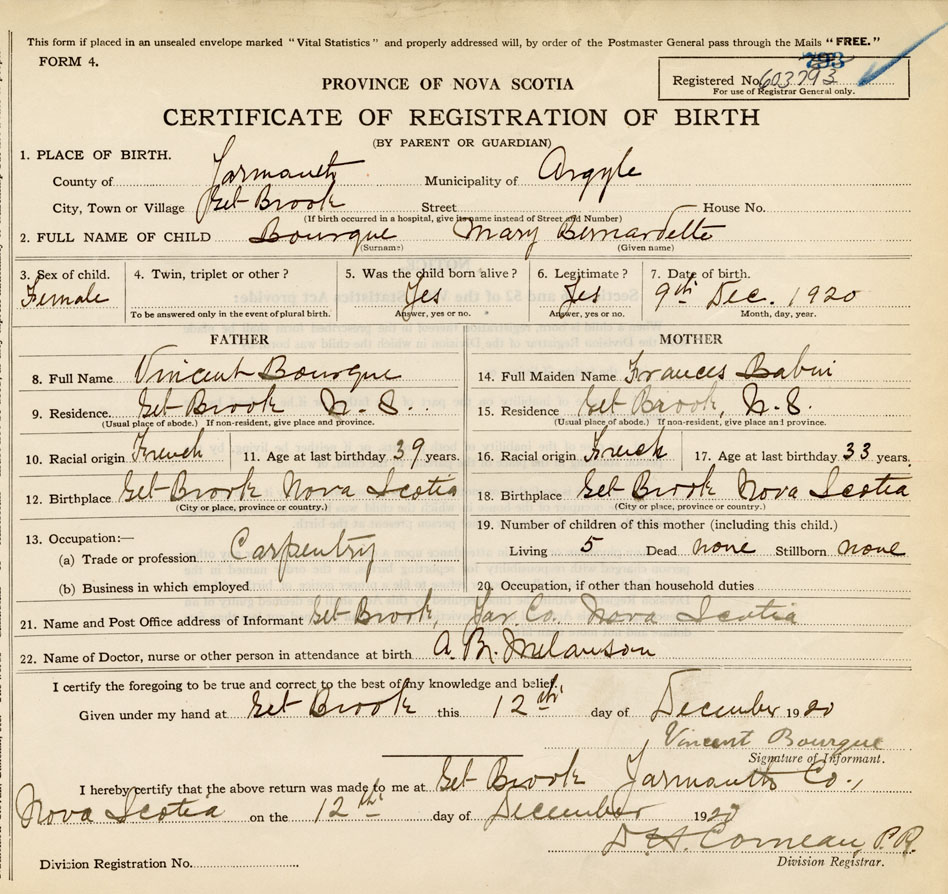 This form if placed in an unsealed envelope marked “Vital Statistics” and properly addressed will, by order of the Postmaster General pass through the Mails “FREE.”
FORM 4.
793
PROVINCE OF NOVA SCOTIA
Registered No. 603793
For use of Registrar General only.
CERTIFICATE OF REGISTRATION OF BIRTH
(BY PARENT OR GUARDIAN)
1. PLACE OF BIRTH.
County of Yarmouth Municipality of Argyle
City, Town or Village Eel-Brook Street House No.
(If birth occurred in a hospital, give its name instead of Street and Number)
2. FULL NAME OF CHILD Bourque Mary Bernardette
(Surname) (Given name)
3. Sex of child. 4. Twin, triplet or other? 5. Was the child born alive? 6. Legitimate? 7. Date of birth.
Female Yes Yes 9th Dec. 1920
To be answered only in the event of plural birth. Answer, yes or no. Answer, yes or no. Month, day, year.
FATHER
8. Full Name Vincent Bourque
9. Residence. Eel-Brook N.S.
(Usual place of abode.) If non-resident, give place and province.
10. Racial origin French 11. Age at last birthday 39 years.
12. Birthplace Eel-Brook Nova Scotia
(City or place, province or country.)
13. Occupation:—
(a) Trade or profession Carpentry
(b) Business in which employed
MOTHER
14. Full Maiden Name Frances Babin
15. Residence Eel Brook, N.S.
(Usual place of abode.) If non-resident, give place and province.
16. Racial origin French 17. Age at last birthday 33 years.
18. Birthplace Eel Brook Nova Scotia
(City or place, province or country.)
19. Number of children of this mother (including this child.)
Living 5 Dead none Stillborn none
20. Occupation, if other than household duties
21. Name and Post Office address of Informant Eel Brook, Yar. Co. Nova Scotia
22. Name of Doctor, nurse or other person in attendance at birth A. B. Melanson
I certify the foregoing to be true and correct to the best of my knowledge and belief.
Given under my hand at Eel Brook this 12th day of December 1920
Vincent Bourque
Signature of Informant.
I hereby certify that the above return was made to me at Eel Brook Yarmouth Co.,
Nova Scotia on the 12th day of December 1920
D. H. Comeau, P.P.
Division Registration No. Division Registrar.